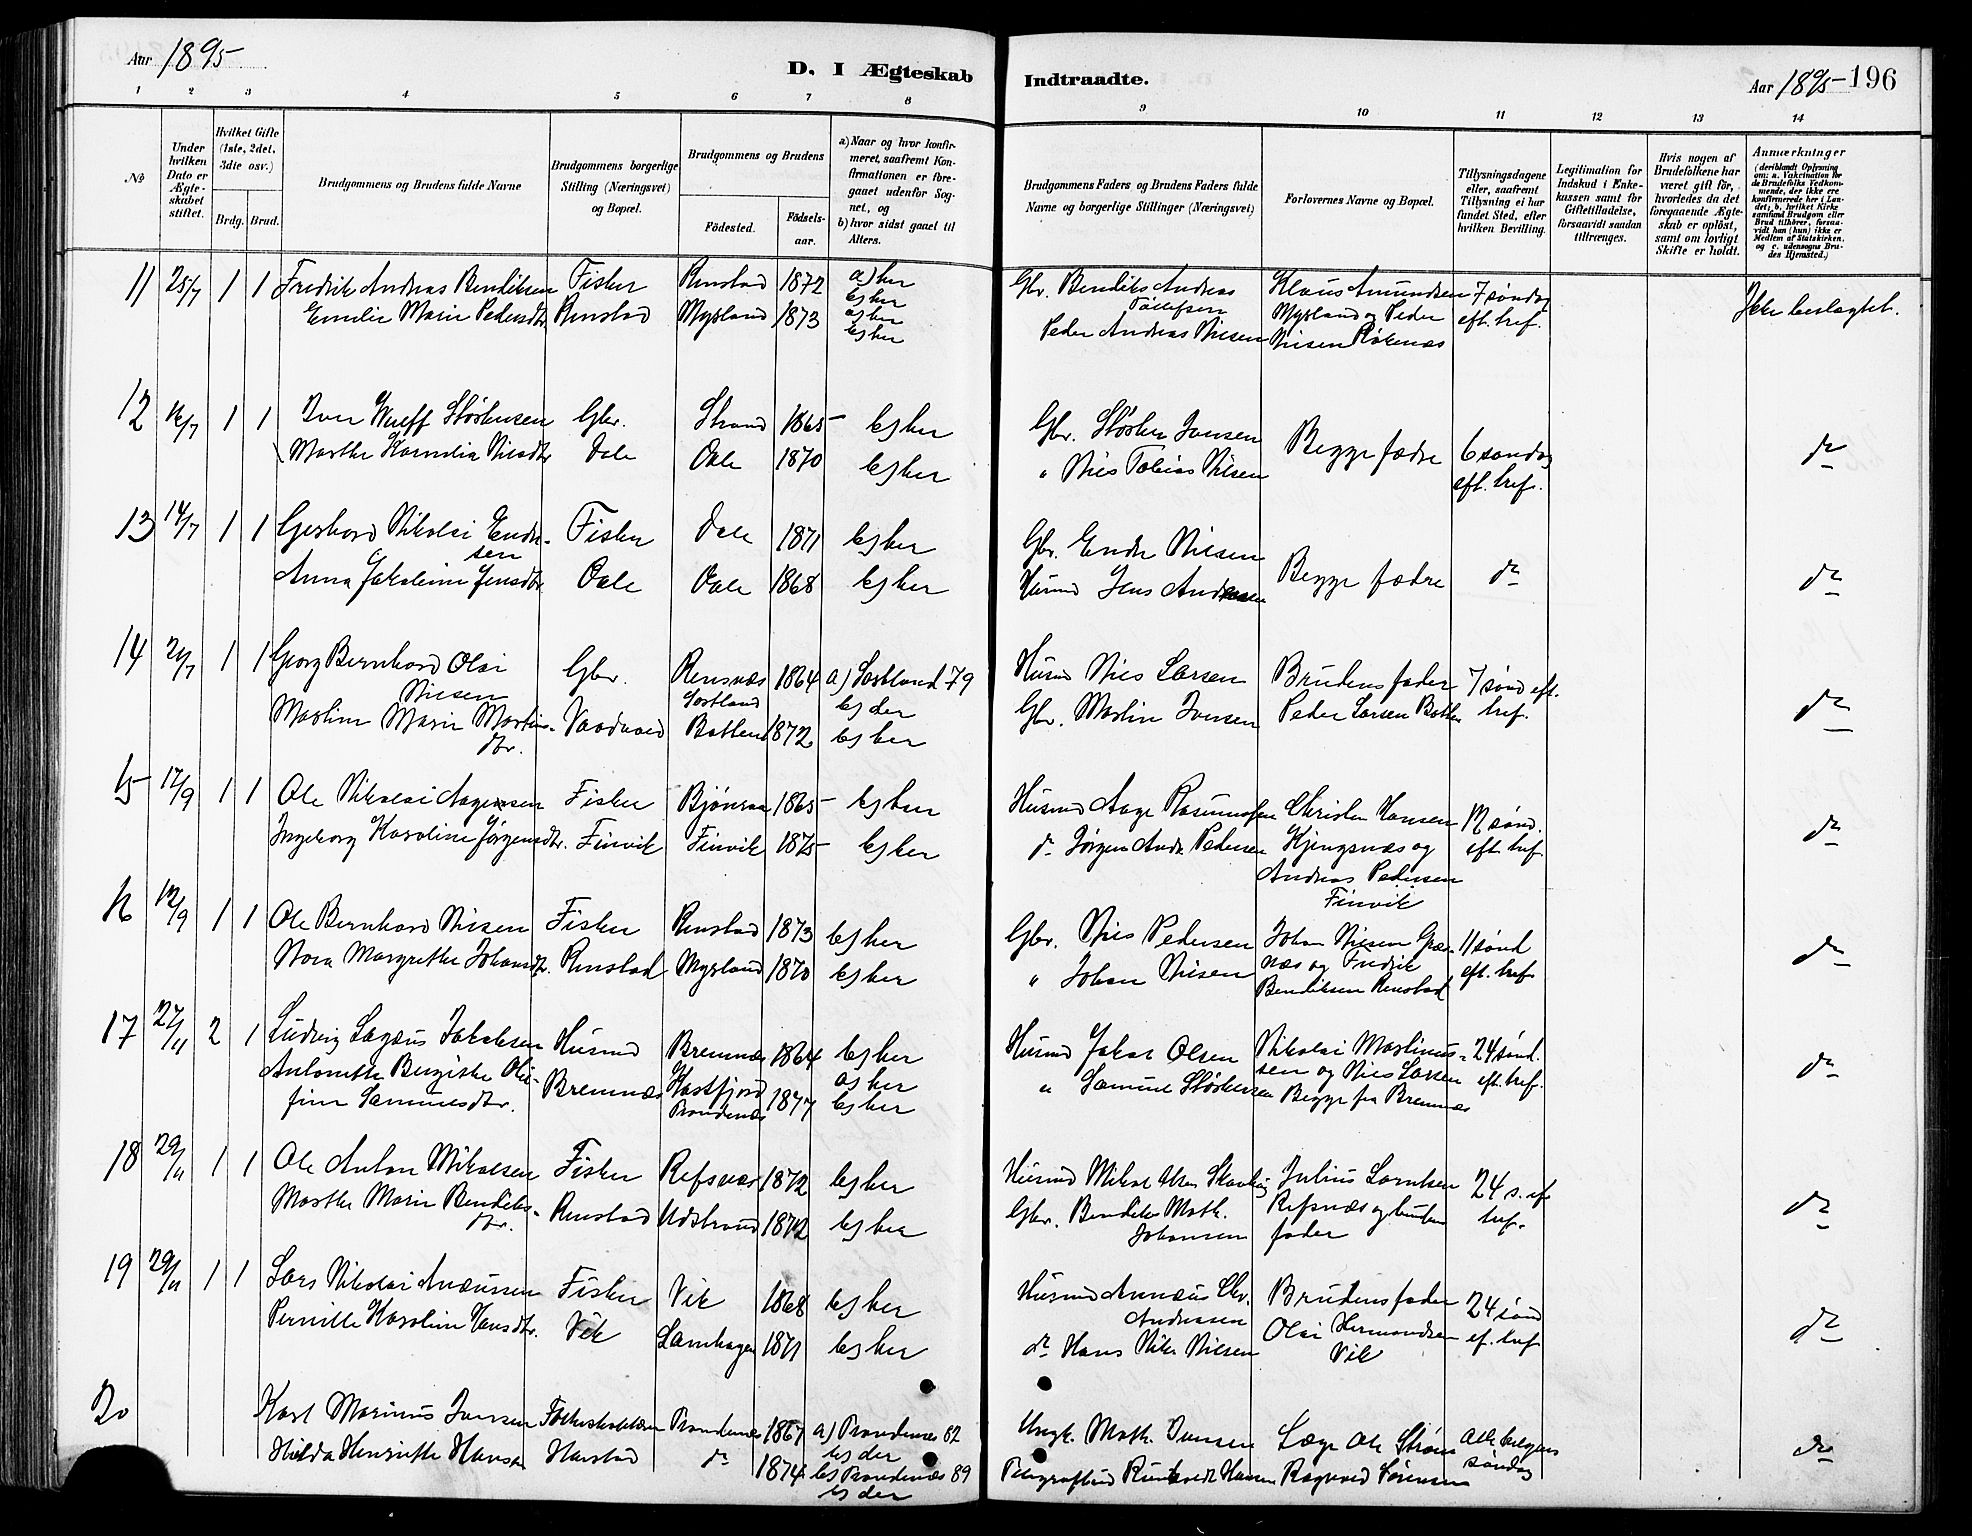 Aar 1895
D. I Ægteskab Indtraadte.
Aar 1895 196
1 2 3 4 5 6 7 8 9 10 11 12 13 14
No
Under hvilken Dato er Ægteskabet stiftet.
Hvilket Gifte (1ste, 2det, 3die osv.)
Brdg. Brud.
Brudgommens og Brudens fulde Navne
Brudgommens borgerlige Stilling (Næringsvei) og Bopæl.
Brudgommens og Brudens
Fødested. Fødselsaar.
a) Naar og hvor konfirmeret, saafremt Konfirmationen er foregaaet udenfor Sognet, og
b) hvor sidst gaaet til Alters.
Brudgommens Faders og Brudens Faders fulde Navne og borgerlige Stillinger (Næringsvei)
Forlovernes Navne og Bopæl.
Tillysningsdagene eller, saafremt Tillysning ei har fundet Sted, efter hvilken Bevilling.
Legitimation for Indskud i Enkekassen samt for Giftetilladelse, forsaavidt saadan tiltrænges.
Hvis nogen af Brudefolkene har været gift før, hvorledes da det foregaaende Ægteskab er opløst, samt om lovligt Skifte er holdt.
Anmærkninger
(deriblandt Oplysning om: a. Vakcination for de Brudefolks Vedkommende, der ikke ere konfirmerede her i Landet; b. hvilket Kirkesamfund Brudgom eller Brud tilhører, forsaavidt han (hun) ikke er Medlem af Statskirken, og c. udensogns Brudes Hjemsted.)
11 25/7 1 1 Fredrik Andreas Bendiksen Fisker Renstad 1872 a) her b) her Gbr. Bendiks Andreas Tollefsen Klaus Amundsen 7 søndag Ikke beslægtet.
Emelie Marie Pedersdtr Renstad Myrland 1873 a) her b) her Peder Andreas Nilsen Myrland og Peder Nilsen Røkenæs eft. tref.
12 16/7 1 1 Iver Wulff Størkersen Gbr. Strand 1865 b) her Gbr. Størker Iversen Begge fædre 6 søndag do
Marthe Kornelia Nilsdtr Dale Dale 1870 b) her " Nils Tobias Nilsen eft. tref.
13 14/7 1 1 Gerhard Nikolai Endresen Fisker Dale 1871 b) her Gbr. Endre Nilsen Begge fædre do do
Anna Jakobine Jensdtr. Dale Dale 1868 b) her Husmd Jens Andersen
14 21/7 1 1 Georg Bernhard Olai Nilsen Gbr. Rensnæs Sortland 1864 a) Sortland 79 b) der Husmd Nils Larsen Brudens fader 7 sønd eft.
Martine Marie Martinsdtr. Vaadvold Botten 1872 b) her Gbr. Martin Iversen Peder Larsen Botten tref. do
15 17/9 1 1 Ole Nikolai Aagensen Fisker Bjørnraa 1865 b) her Husmd Aage Rasmussen Christen Hansen 12 sønd. do
Ingeborg Karoline Jørgensdtr. Finvik Finvik 1875 b) her do Jørgen Andr. Pedersen Kjengsnæs og eft. tref.
Andreas Pedersen
Finvik
16 12/9 1 1 Ole Bernhard Nilsen Fisker Renstad 1873 b) her Gbr. Nils Pedersen Johan Nilsen Græsnæs og Fredrik Bendiksen Renstad 11 sønd eft. tref. do
Nora Margrethe Johansdtr. Renstad Myrland 1870 b) her " Johan Nilsen
17 27/11 2 1 Ludvig Lagæus Jakobsen Husmd Bremnæs 1864 b) her Husmd Jakob Olsen Nikolai Martinussen og Nils Larsen 24 sønd. do
Antonette Bergitte Olefine Samuelsdtr. Bremnæs Kasfjord Trondenæs 1877 a) her b) her " Samuel Størkersen Begge fra Bremnæs eft. tref.
18 29/11 1 1 Ole Anton Mikalsen Fisker Refsnæs 1872 b) her Husmd Mikal Julius Lorntsen 24 s. ef. do
Marthe Marie Bendiksdtr. Renstad Udstrand 1872 b) her Gbr. Bendiks Math. Johansen Refsnæs og brudens fader tref.
19 29/11 1 1 Lars Nikolai Anæussen Fisker Vik 1868 b) her Husmd Annæus Chr. Andreasen Brudens fader 24 sønd do
Pernille Karoline Hansdtr. Vik Lamhagen 1871 b) her do Hans Nik. Nilsen Olai Hermandsen Vik ef. tref
20 Karl Marinus Iversen Folkeskolelærer Trondenæs 1867 a) Trondenæs 82 b) der Ungk. Math. Iversen Læge Ole Strøm Alle helgens søndag do
Hilda Henriette Hansen Harstad do 1874 b) Trondenæs 89 b) der Telegrafbud Hansen Ragnvald Sørensen